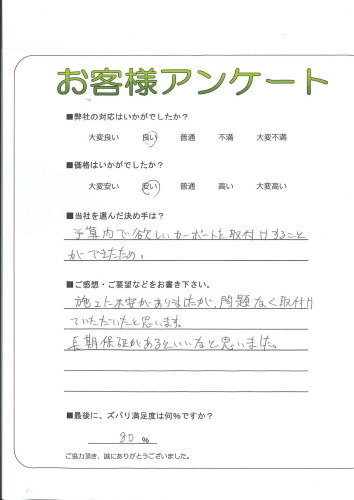 お客様アンケート
■弊社の対応はいかがでしたか？
大変良い 良い 普通 不満 大変不満
■価格はいかがでしたか？
大変安い 安い 普通 高い 大変高い
■当社を選んだ決め手は？
予算内で欲しいカーポートを取付けすること
ができたため。
■ご感想・ご要望などをお書き下さい。
施工に不安がありましたが、問題なく取付け
ていただいたと思います。
長期保証があるといいなと思いました。
■最後に、ズバリ満足度は何％ですか？
80 ％
ご協力頂き、誠にありがとうございました。